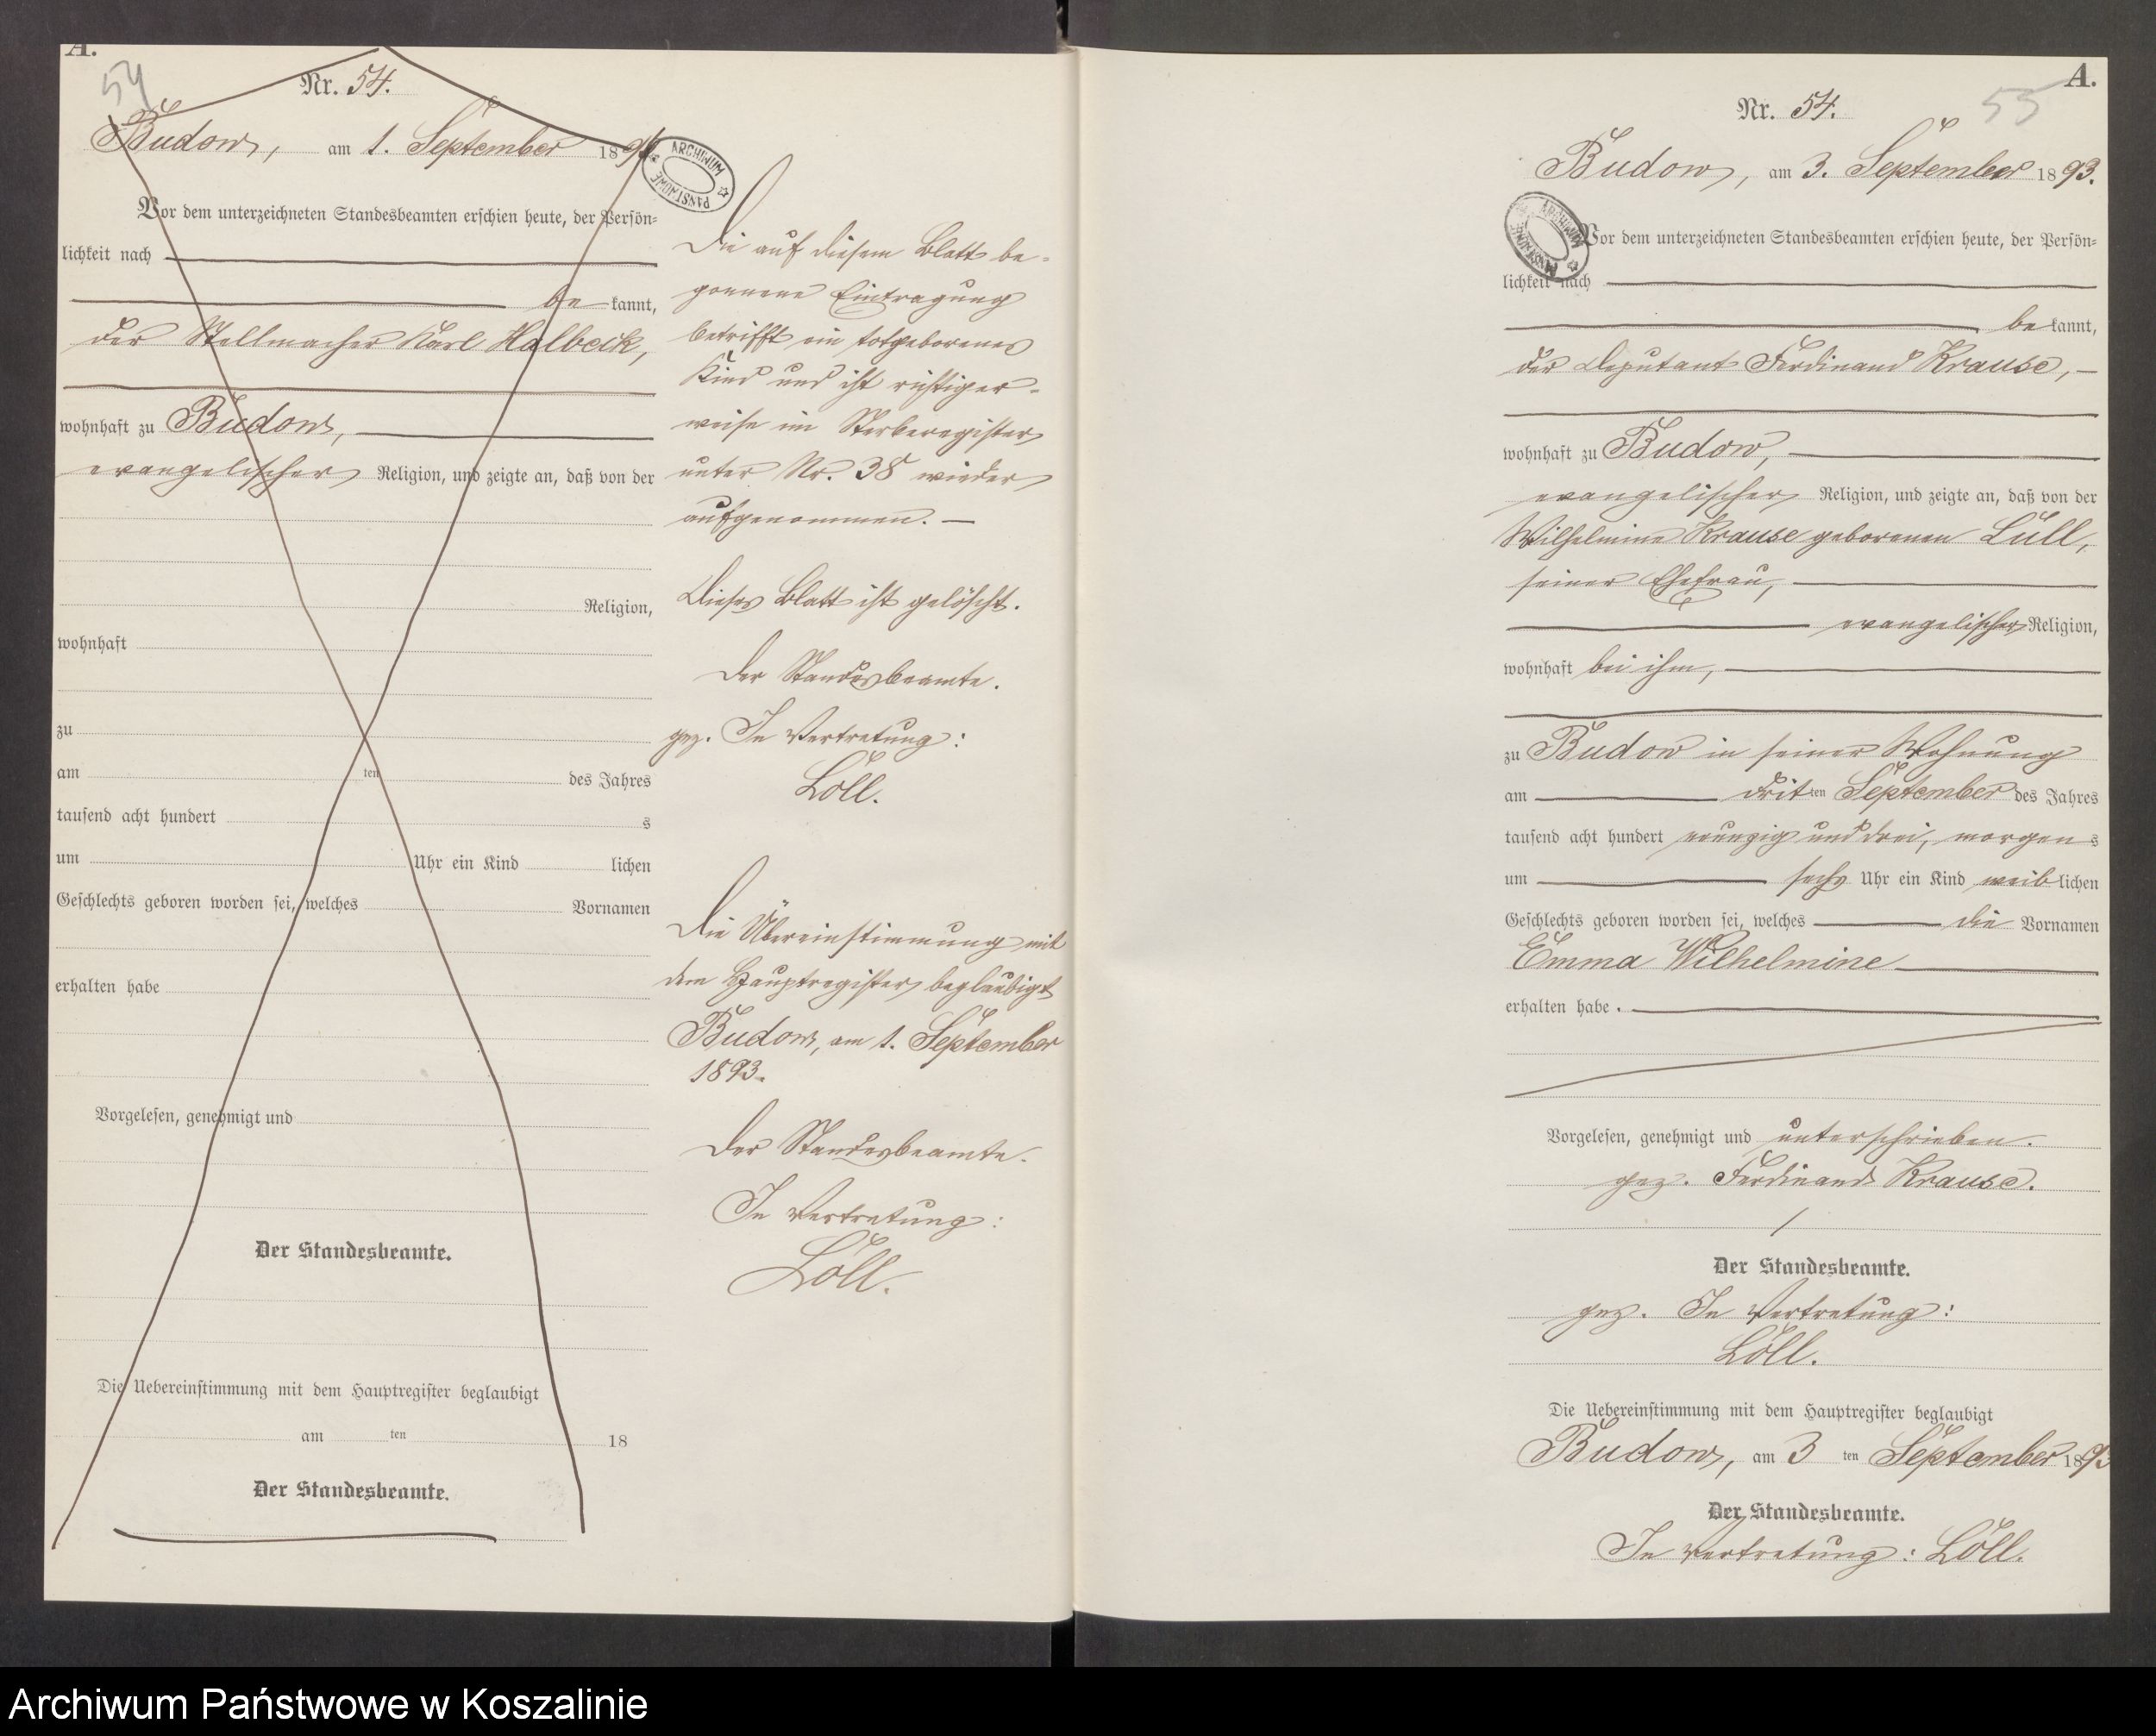 A.
54
Nr. 54.
Budow, am 1. September 1893
ARCHIWUM PAŃSTWOWE
Vor dem unterzeichneten Standesbeamten erschien heute, der Persön=
lichkeit nach
be kannt,
der Stellmacher Karl Halbeck,
wohnhaft zu Budow,
evangelischer Religion, und zeigte an, daß von der
Religion,
wohnhaft
zu
am ten des Jahres
tausend acht hundert s
um Uhr ein Kind lichen
Geschlechts geboren worden sei, welches Vornamen
erhalten habe
Vorgelesen, genehmigt und
Der Standesbeamte.
Die Uebereinstimmung mit dem Hauptregister beglaubigt
am ten 18
Der Standesbeamte.
Die auf diesem Blatt be=
gonnene Eintragung
betrifft ein totgeborenes
Kind und ist richtiger=
weise im Sterberegister
unter Nr. 38 wieder
aufgenommen. —
Dieses Blatt ist gelöscht.
Der Standesbeamte.
gez. In Vertretung:
Löll.
Die Übereinstimmung mit
dem Hauptregister beglaubigt
Budow, am 1. September
1893.
Der Standesbeamte.
In Vertretung:
Löll.
A.
55
Nr. 54.
Budow, am 3. September 1893.
ARCHIWUM PAŃSTWOWE
Vor dem unterzeichneten Standesbeamten erschien heute, der Persön=
lichkeit nach
be kannt,
der Deputant Ferdinand Krause, —
wohnhaft zu Budow,
evangelischer Religion, und zeigte an, daß von der
Wilhelmine Krause geborenen Lüll,
seiner Ehefrau,
evangelischer Religion,
wohnhaft bei ihm,
zu Budow in seiner Wohnung
am dritten September des Jahres
tausend acht hundert neunzig und drei, morgens
um sechs Uhr ein Kind weiblichen
Geschlechts geboren worden sei, welches die Vornamen
Emma Wilhelmine
erhalten habe.
Vorgelesen, genehmigt und unterschrieben.
gez. Ferdinand Krause.
Der Standesbeamte.
gez. In Vertretung:
Löll.
Die Uebereinstimmung mit dem Hauptregister beglaubigt
Budow, am 3 ten September 1893
Der Standesbeamte.
In Vertretung: Löll.
Archiwum Państwowe w Koszalinie